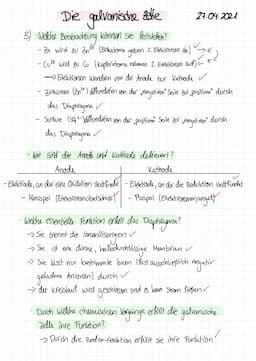 Die galvanische Zelle 27.04.2021
3) Welche Beobachtung können sie feststellen?
- Zn wird zu Zn²⁺ (Zinkatome geben 2 Elektronen ab)
- Cu²⁺ wird zu Cu (Kupferatome nehmen 2 Elektronen auf)
→ Elektronen wandern von der Anode zur Kathode
- Zinkionen (Zn²⁺) diffundieren von der "negativen" Seite zur "positiven" durch
das Diaphragma
- Sulfate (SO₄²⁻) diffundieren von der "positiven" Seite zur "negativen" durch
das Diaphragma
• Wie sind die Anode und Kathode definiert?
Anode Kathode
- Elektrode, an der eine Oxidation stattfindet - Elektrode, an der die Reduktion stattfindet
- Minuspol (Elektronenüberschuss) - Pluspol (Elektronenmangel)
• Welche essentielle Funktion erfüllt das Diaphragma?
→ Sie trennt die Ionenlösungen
→ Sie ist eine dünne, halbdurchlässige Membran
→ Sie lässt nur bestimmte Ionen (fast ausschließlich negativ
geladene Anionen) durch
→ der Kreislauf wird geschlossen und es kann Strom fließen
• Durch welche chemischen Vorgänge erfüllt die galvanische
Zelle ihre Funktion?
→ Durch die Redox-Reaktion erfüllt sie ihre Funktion